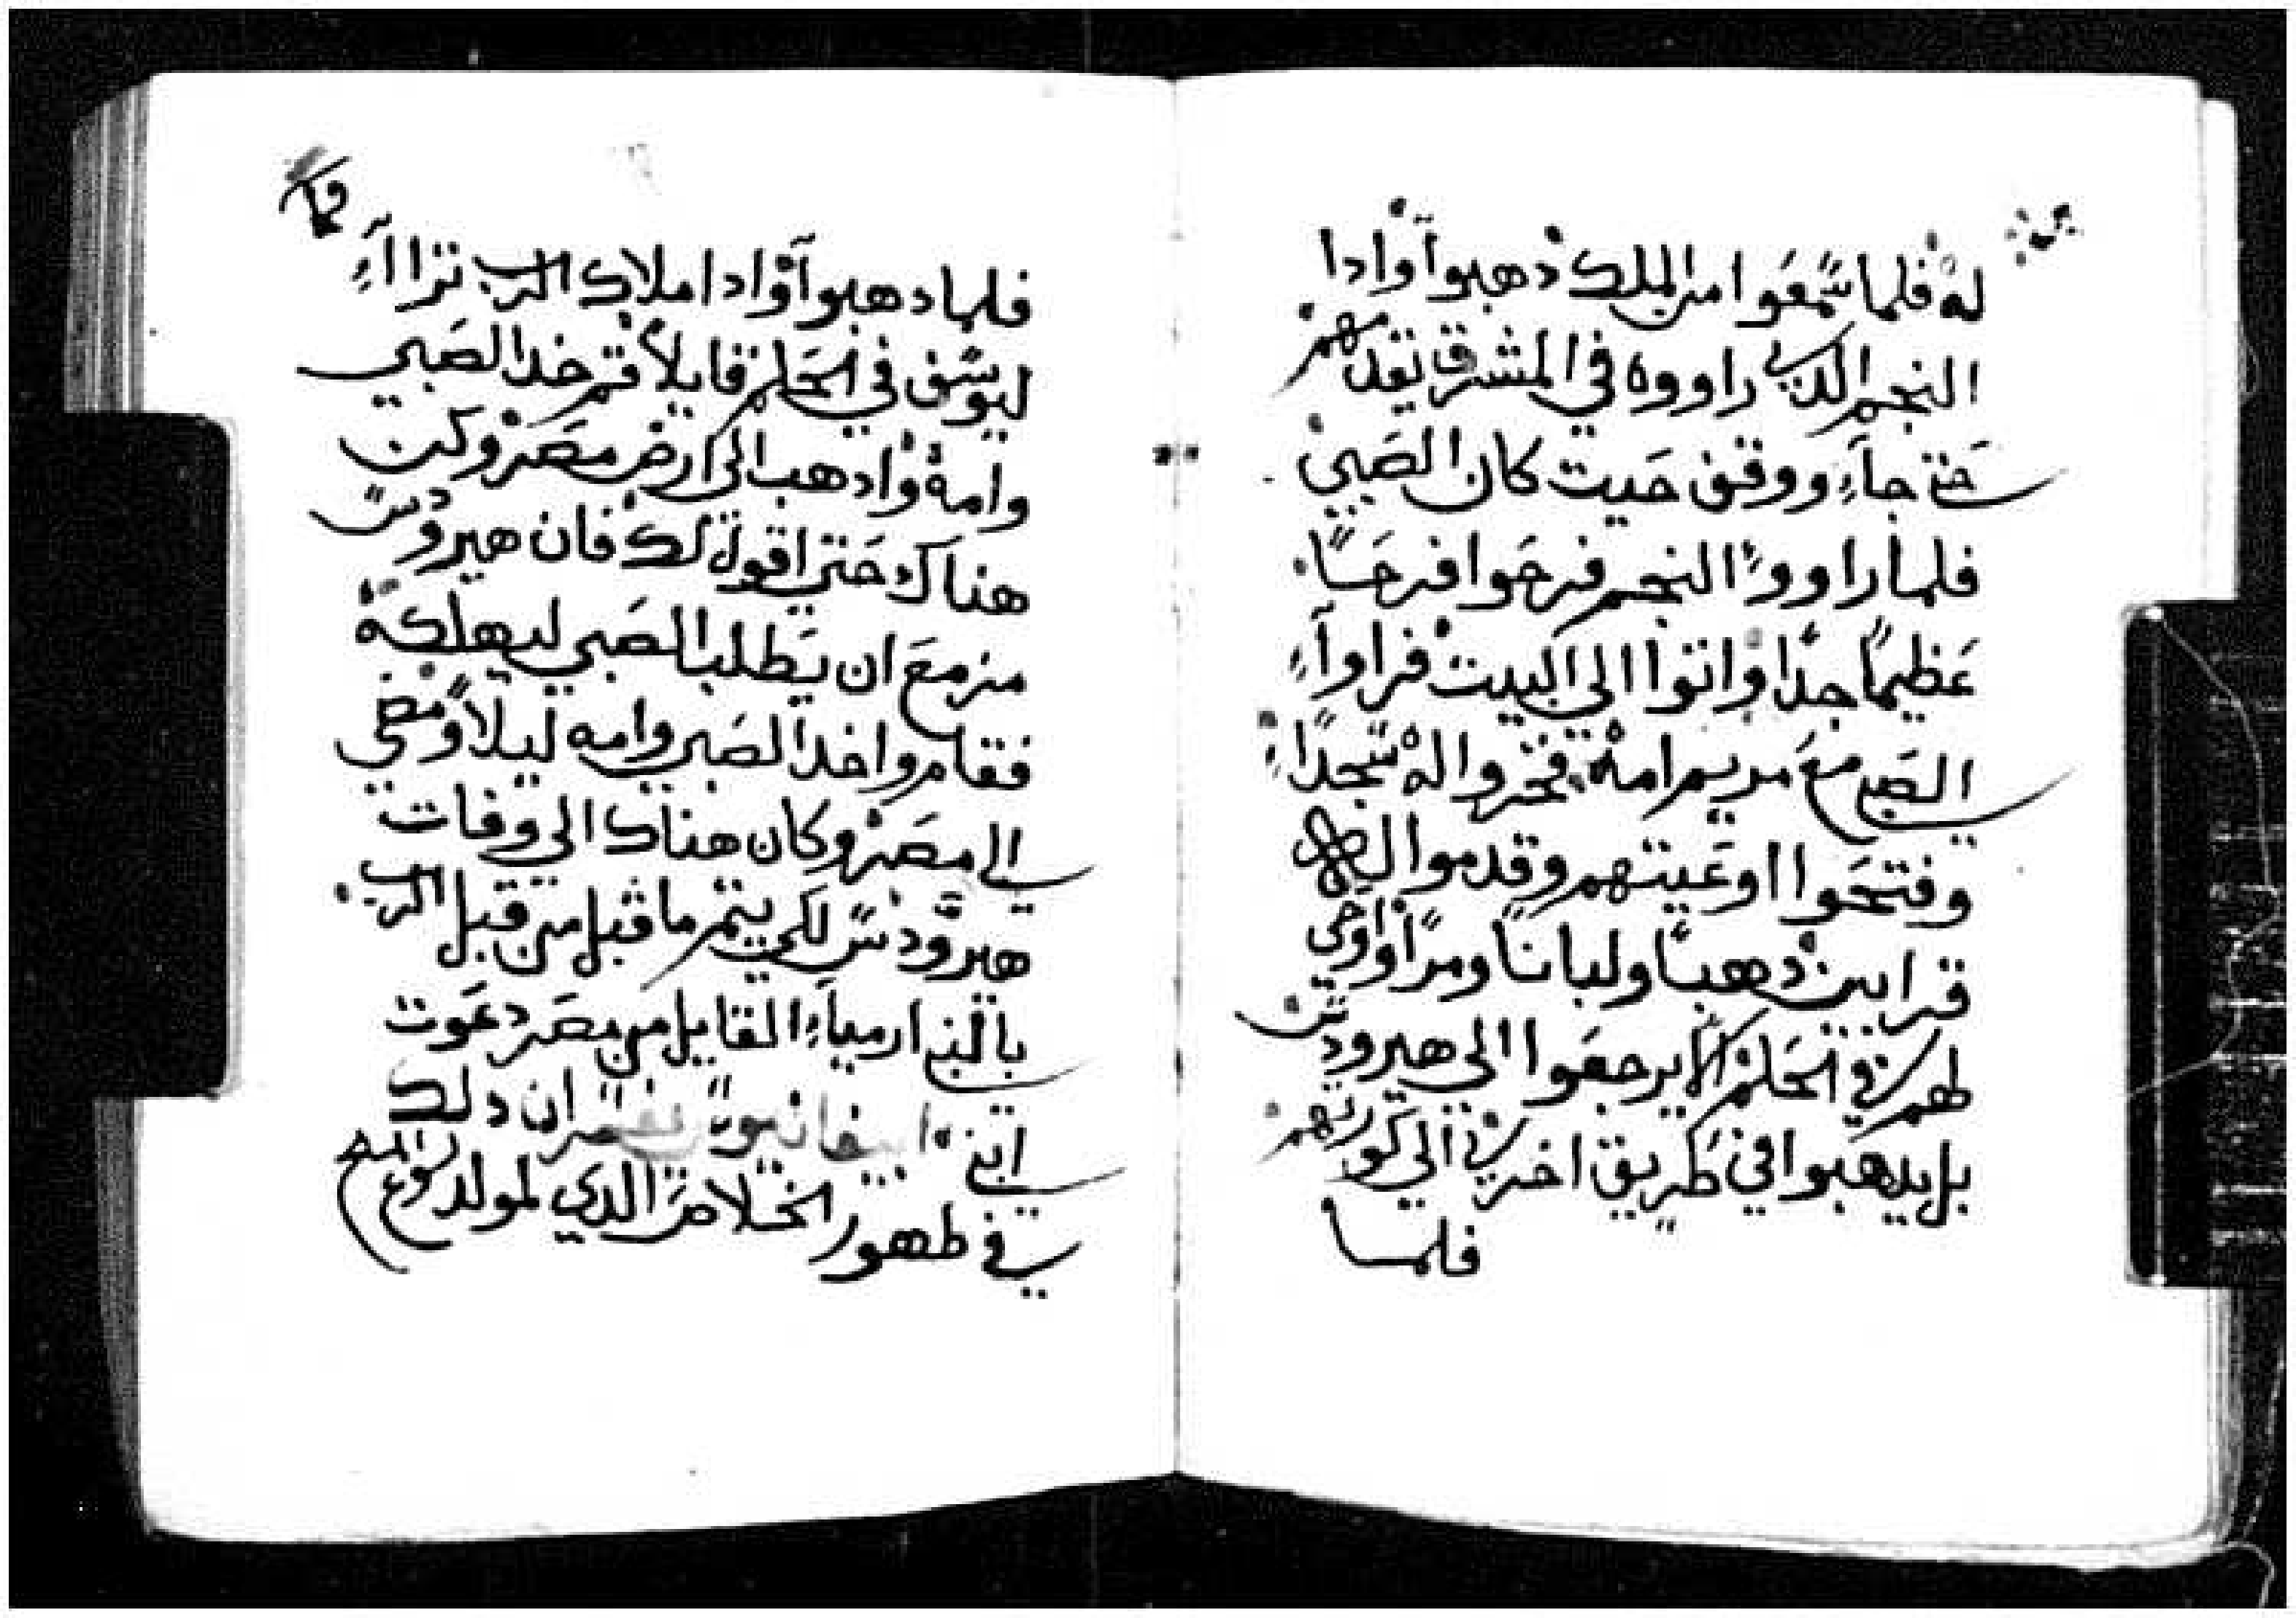 له فلما سمعوا من الملك دهبوا وادا
النجم الدي راووه في المشرق تقدمهم
حتى جاء ووقف حيت كان الصبي
فلما راووا النجم فرحوا فرحًا
عظيمًا جدًا واتوا الى البيت فراوا
الصبي مع مريم امه فخروا له سجدًا
وفتحوا اوعيتهم وقدموا له
قرابين دهبًا ولبانًا ومرًا واوحى
لهم في الحلم الا يرجعوا الي هيرودس
بل يدهبوا في طريق اخرى الي كورتهم
فلما
فلما دهبوا وادا ملاك الرب تراآء
ليوسف في الحلم قايلًا قم خد الصبي
وامه وادهب الى ارض مصر وكن
هناك حتى اقول لك فان هيرودس
مزمع ان يطلب الصبي ليهلكه
فقام واخد الصبي وامه ليلًا ومضي
الي مصر وكان هناك الي وفات
هيرودس لكي يتم ما قيل من قبل الرب
بالنبي ارمياء القايل من مصر دعوت
ابني ان دلك
في ظهور الخلاص الدي لمولد يسوع المسيح